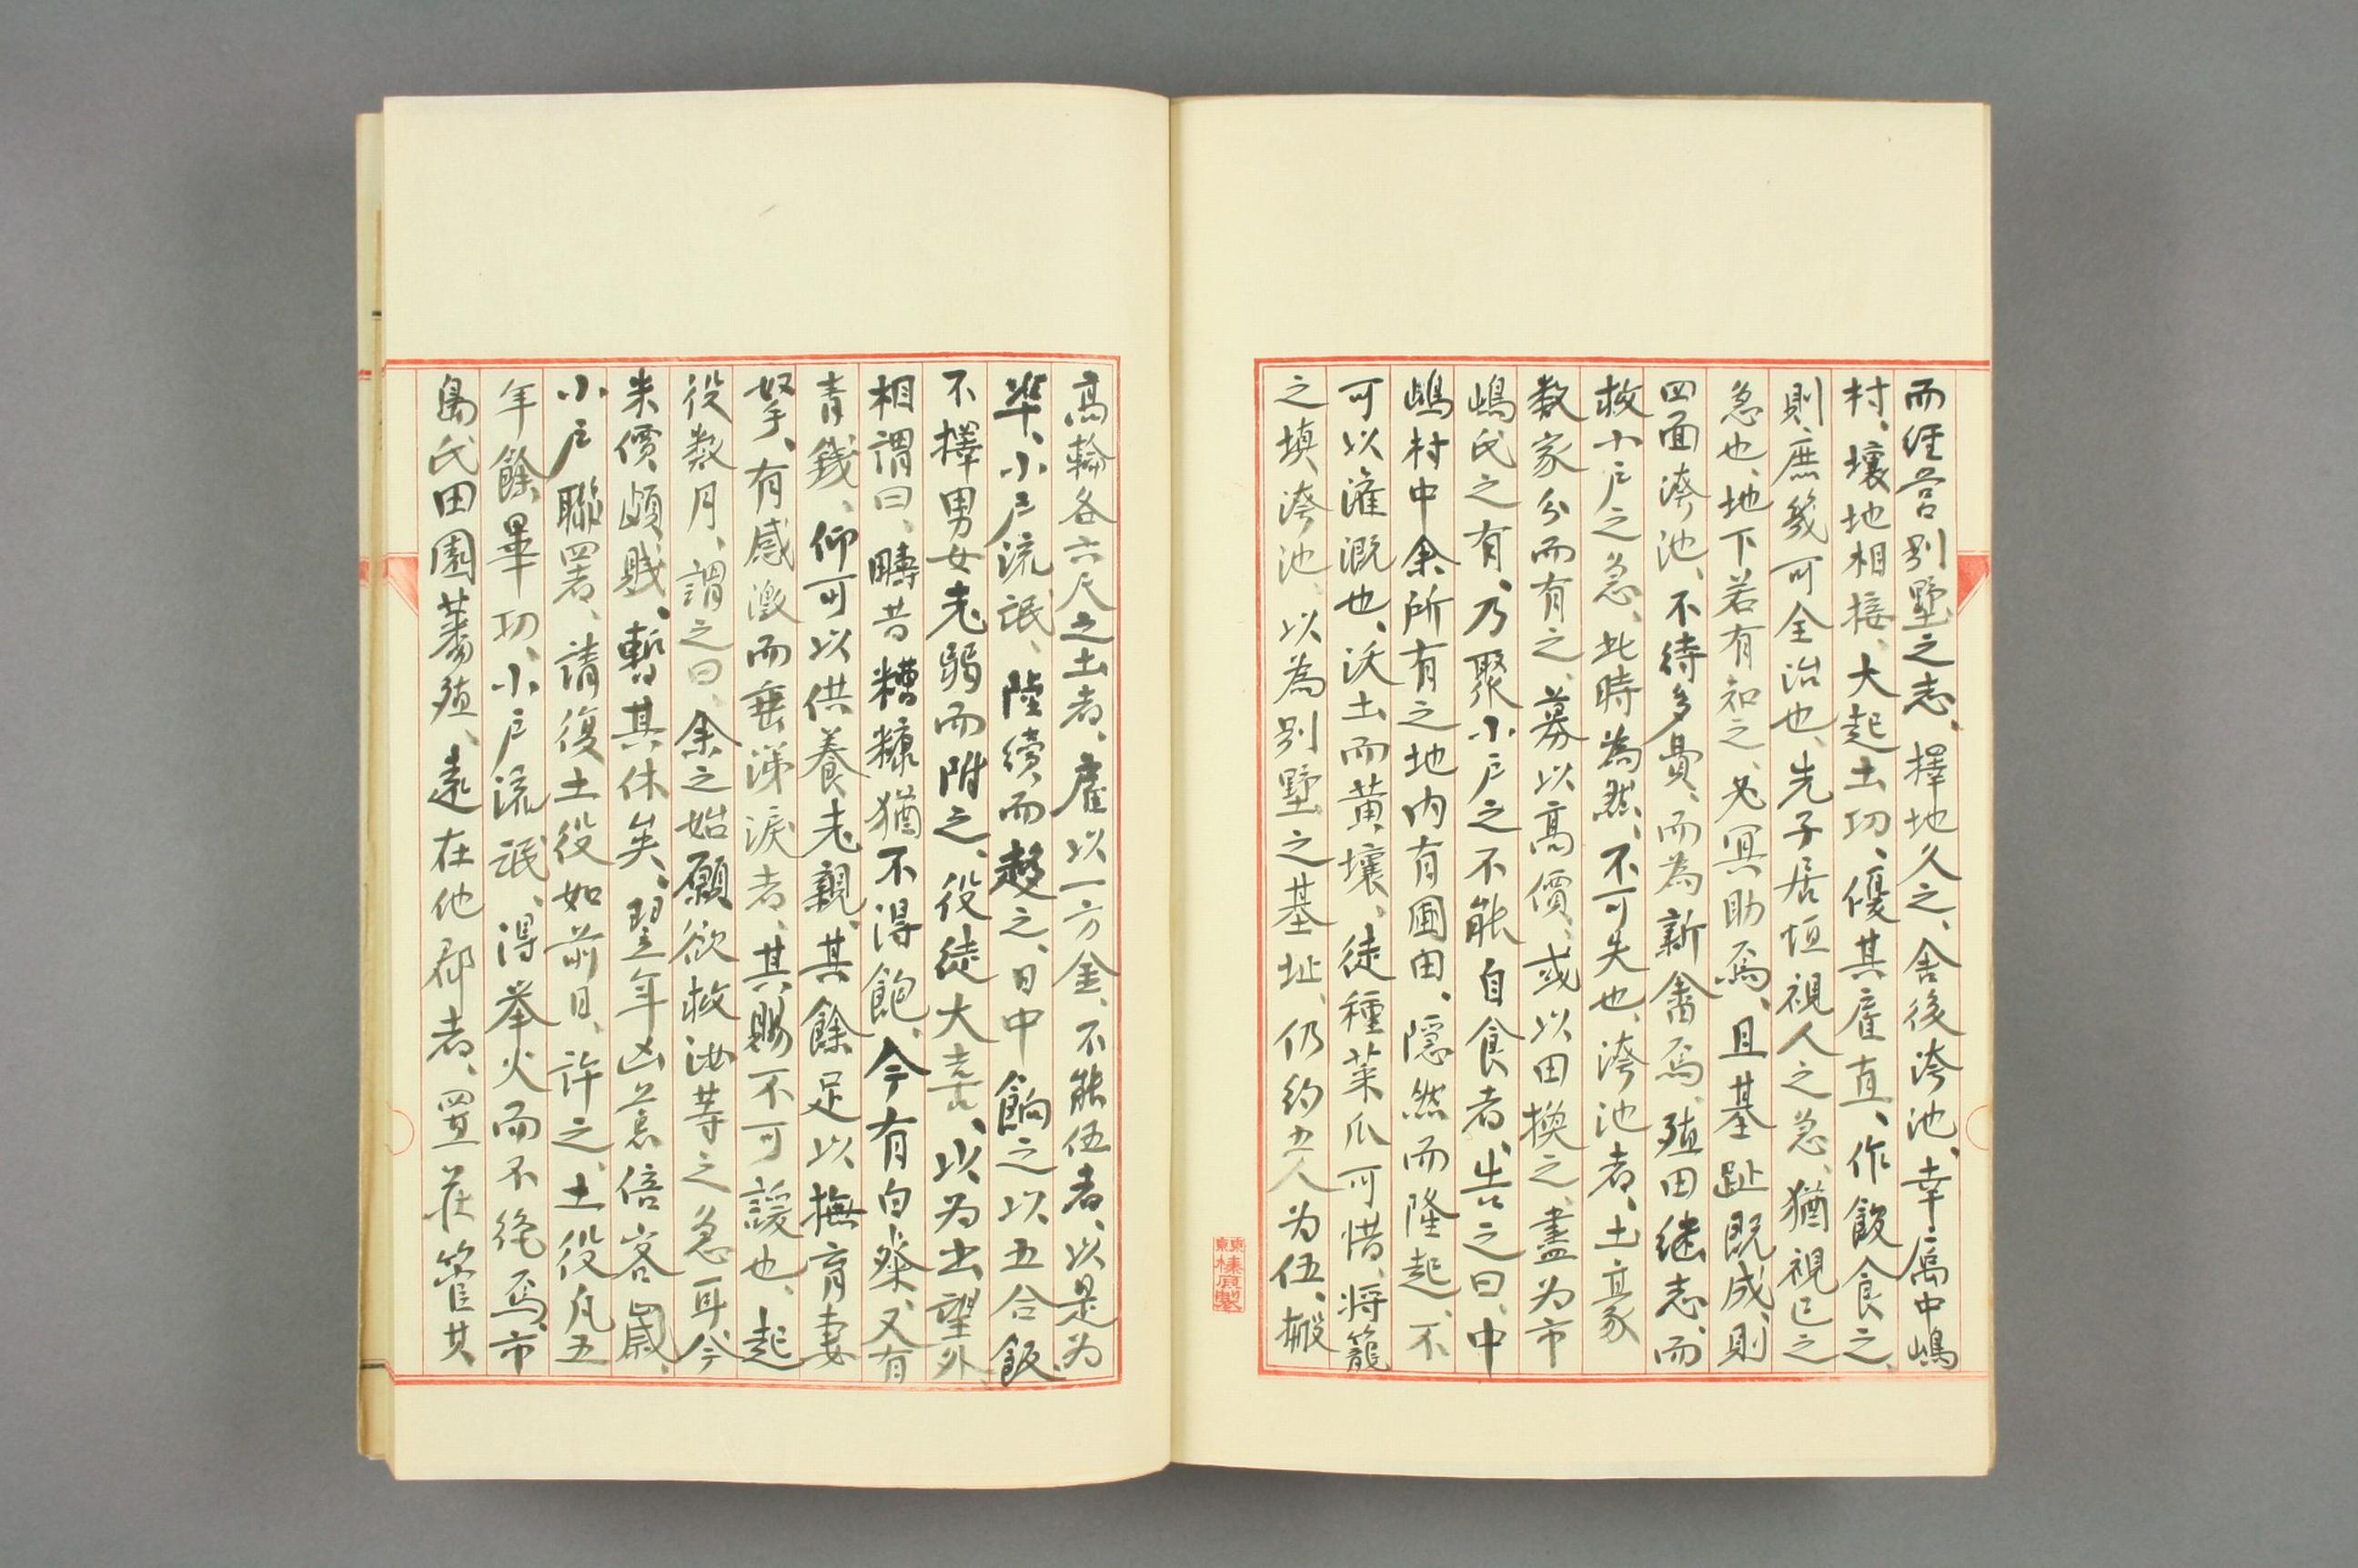 而経営別墅之志、擇地久之、舎後洿池、幸属中嶋
村、壤地相接、大起土功、優其雇直、作飯食之、
則庶幾可全治也、先子居恒視人之急、猶視己之
急也、地下若有知之、必冥助焉、且基趾既成、則
四面洿池、不待多費、而為新畬焉、殖田継志、而
救小戸之急、此時為然、不可失也、洿池者、土豪
数家分而有之、募以高價、或以田換之、盡为市
嶋氏之有、乃聚小戸之不能自食者、告之曰、中
嶋村中余所有之地内有圃田、隠然而隆起、不
可以灌漑也、沃土而黄壤、徒種菜瓜可惜、将籠
之填洿池、以為别墅之基址、仍約五人为伍、搬
高輪各六尺之土者、雇以一方金、不能伍者、以是为
準、小戸流氓、陸續而趍之、日中餉之以五合飯、
不擇男女老弱而附之、役徒大喜、以为出望外、
相謂曰、疇昔糟糠猶不得飽、今有白粲、又有
青錢、仰可以供養老親、其餘足以撫育妻
孥、有感激而垂涕涙者、其賜不可諼也、起
役数月、謂之曰、余之始願欲救汝等之急耳、今
米價頗賤、暫其休矣、翌年凶荒倍客歳、
小戸聯署、請復土役如前日、許之、土役凡五
年餘畢功、小戸流氓、得挙火而不絶焉、市
島氏田園蕃殖、遠在他郡者、置荘管其